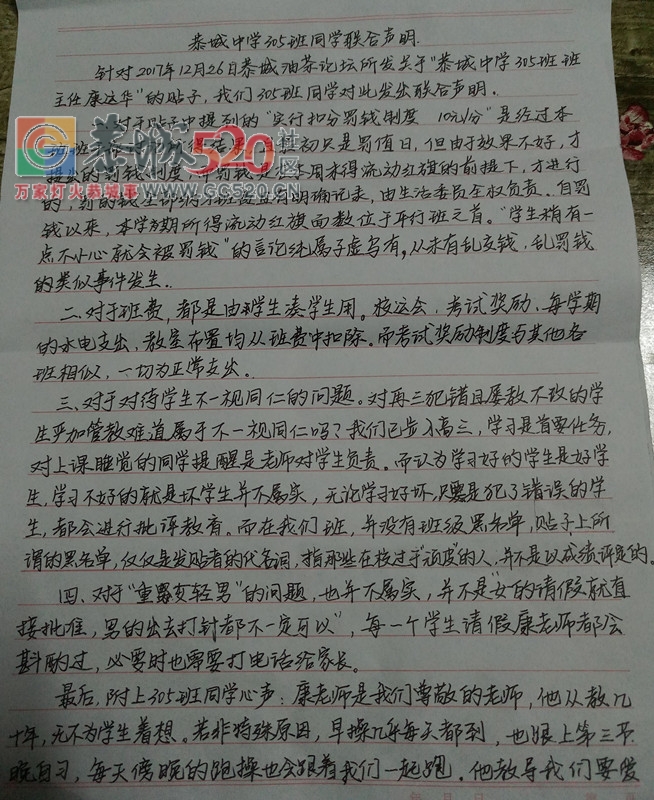 恭城中学305班同学联合声明.
针对2017年12月26日恭城油茶论坛所发关于"恭城中学305班班
主任康达华"的贴子,我们305班同学对此发出联合声明.
对于贴子中提到的"实行扣分罚钱制度 10元/分"是经过本
初只是罚值日,但由于效果不好,才
周未得流动红旗的前提下,才进行
明确记录,由生活委员全权负责.自罚
钱以来,本学期所得流动红旗面数位于平行班之首."学生稍有一
点不小心就会被罚钱"的言论纯属子虚乌有,从未有乱交钱,乱罚钱
的类似事件发生.
二.对于班费,都是由学生凑学生用.校运会,考试奖励,每学期
的水电支出,教室布置均从班费中扣除.而考试奖励制度与其他各
班相似,一切为正常支出.
三.对于对待学生不一视同仁的问题。对再三犯错且屡教不改的学
生严加管教难道属于不一视同仁吗?我们已步入高三,学习是首要任务,
对上课睡觉的同学提醒是老师对学生负责.而认为学习好的学生是好学
生,学习不好的就是坏学生并不属实,无论学习好坏,只要是犯了错误的学
生,都会进行批评教育.而在我们班,并没有班级黑名单,贴子上所
谓的黑名单,仅仅是发贴者的代名词,指那些在校过于"顽皮"的人,并不是以成绩评定的.
四、对于"重女轻男"的问题,也并不属实,并不是"女的请假就直
接批准,男的出去打针都不一定可以",每一个学生请假康老师都会
斟酌过,必要时也需要打电话给家长.
最后,附上305班同学心声:康老师是我们尊敬的老师,他从教几
十年,无不为学生着想.若非特殊原因,早操几乎每天都到,也跟上第三节
晚自习,每天傍晚的跑操也会跟着我们一起跑.他教导我们要爱
恭城520社区
万家灯火恭城事 WWW.GC520.COM